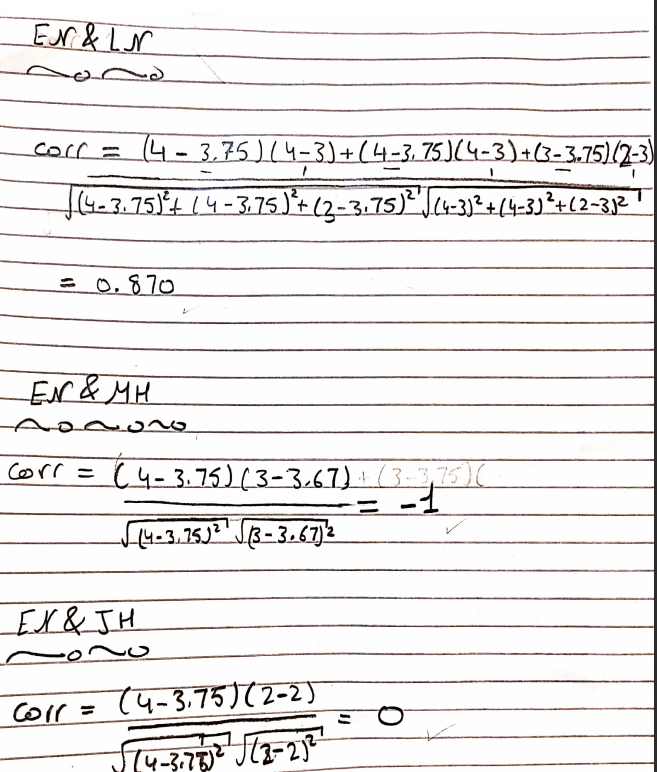 EN & LN
corr = (4 - 3.75)(4-3)+(4-3.75)(4-3)+(3-3.75)(2-3)
√(4-3.75)²+(4-3.75)²+(3-3.75)² √(4-3)²+(4-3)²+(2-3)²
= 0.870
EN & MH
corr = (4-3.75)(3-3.67) + (3-3.75)(
= -1
√(4-3.75)² √(3-3.67)²
EN & JH
corr = (4-3.75)(2-2)
= 0
√(4-3.75)² √(2-2)²